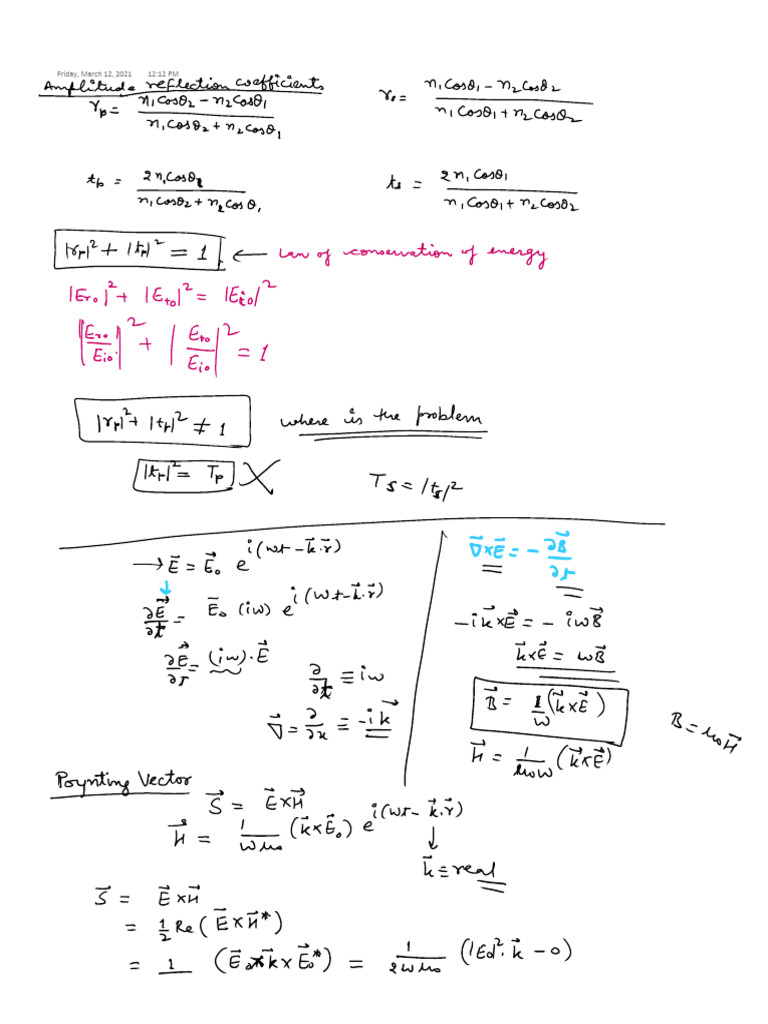 Friday, March 12, 2021 12:12 PM
Amplitude reflection coefficients
r_p = (n₁cosθ₂ − n₂cosθ₁)/(n₁cosθ₂ + n₂cosθ₁)   r_s = (n₁cosθ₁ − n₂cosθ₂)/(n₁cosθ₁ + n₂cosθ₂)
t_p = 2n₁cosθ₁/(n₁cosθ₂ + n₂cosθ₁)   t_s = 2n₁cosθ₁/(n₁cosθ₁ + n₂cosθ₂)
|r_p|² + |t_p|² = 1 ← Law of conservation of energy
|E_ro|² + |E_to|² = |E_io|²
|E_ro/E_io|² + |E_to/E_io|² = 1
|r_p|² + |t_p|² ≠ 1   where is the problem
|t_p|² = T_p ✗   T_s = |t_s|²
→ E⃗ = E⃗₀ e^{i(ωt − k⃗·r⃗)}
↓
∂E⃗/∂t = E⃗₀ (iω) e^{i(ωt − k⃗·r⃗)}
∂E⃗/∂t = (iω)·E⃗
∂/∂t ≡ iω
∇⃗ = ∂/∂x ≡ −ik⃗
∇⃗×E⃗ = −∂B⃗/∂t
−ik⃗×E⃗ = −iωB⃗
k⃗×E⃗ = ωB⃗
B⃗ = 1/ω (k⃗×E⃗)
B = μ₀H⃗
H⃗ = 1/(μ₀ω) (k⃗×E⃗)
Poynting Vector
S⃗ = E⃗×H⃗
H⃗ = 1/(ωμ₀) (k⃗×E⃗₀) e^{i(ωt − k⃗·r⃗)}
↓
k⃗ ≡ real
S⃗ = E⃗×H⃗
= ½ Re(E⃗×H⃗*)
= 1/ (E⃗₀×k⃗×E⃗₀*) = 1/(2ωμ₀) (|E₀|²·k⃗ − 0)